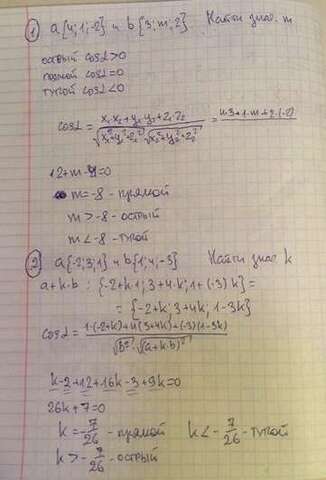 ① a{4;1;-2} и b{3;m;2} Найти знач. m
острый cosα>0
прямой cosα=0
тупой cosα<0
cosα = (x₁x₂+y₁y₂+z₁z₂)/(√(x₁²+y₁²+z₁²) √(x₂²+y₂²+z₂²)) = 4·3+1·m+2·(-2)
12+m-4=0
m=-8 - прямой
m>-8 - острый
m<-8 - тупой
② a{-2;3;1} и b{1;4;-3} Найти знач k
a+k·b : {-2+k·1; 3+4·k; 1+(-3)·k} =
= {-2+k; 3+4k; 1-3k}
cosα = (1·(-2+k)+4(3+4k)+(-3)(1-3k))/(√b² · √(a+k·b)²)
k-2+12+16k-3+9k=0
26k+7=0
k=-7/26 - прямой k<-7/26 - тупой
k>-7/26 - острый